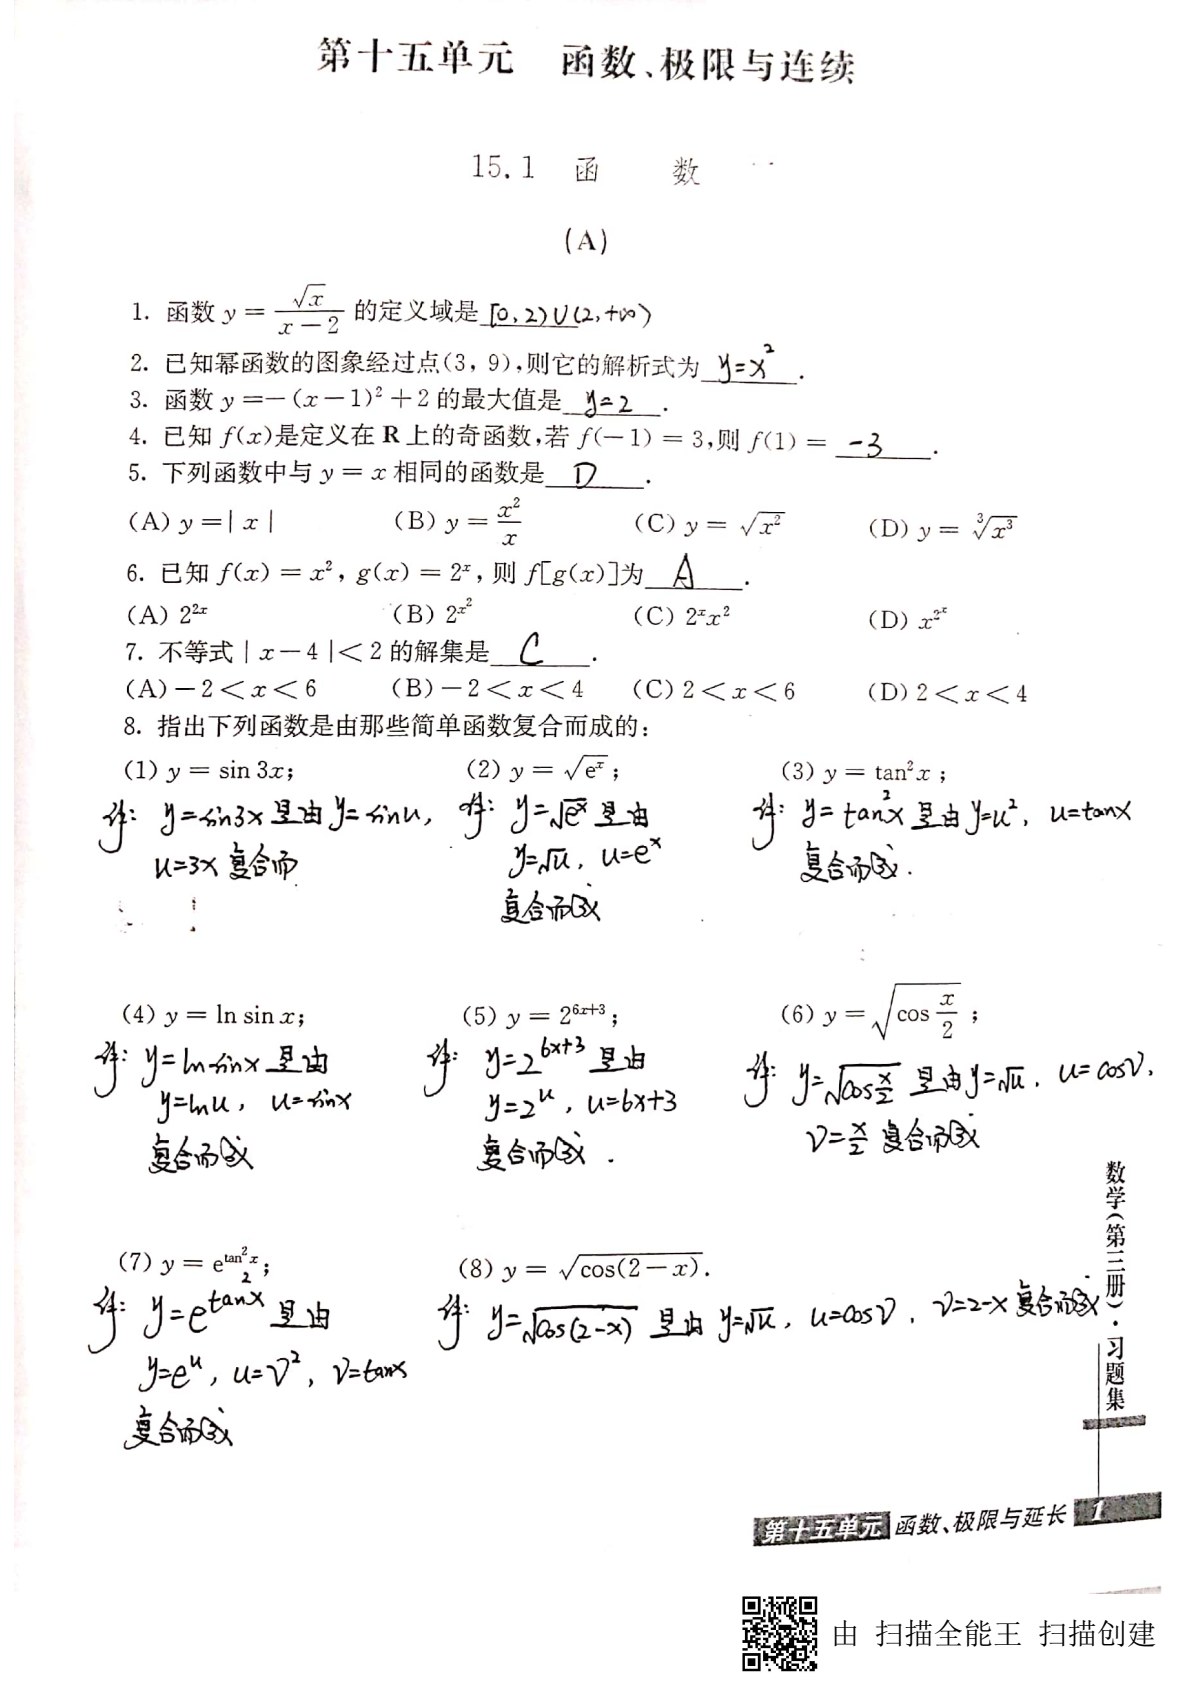 第十五单元 函数、极限与连续
15.1 函 数
(A)
1. 函数 y = √x / (x − 2) 的定义域是 [0,2)∪(2,+∞)
2. 已知幂函数的图象经过点(3, 9),则它的解析式为 y=x².
3. 函数 y =−(x−1)²+2 的最大值是 y=2.
4. 已知 f(x)是定义在 R 上的奇函数,若 f(−1) = 3,则 f(1) = −3.
5. 下列函数中与 y = x 相同的函数是 D.
(A) y =| x | (B) y = x²/x (C) y = √x² (D) y = ∛x³
6. 已知 f(x) = x², g(x) = 2ˣ, 则 f[g(x)]为 A.
(A) 2²ˣ (B) 2^x² (C) 2ˣx² (D) x^2ˣ
7. 不等式 | x−4 |< 2 的解集是 C.
(A) −2 < x < 6 (B) −2 < x < 4 (C) 2 < x < 6 (D) 2 < x < 4
8. 指出下列函数是由那些简单函数复合而成的:
(1) y = sin 3x; (2) y = √eˣ; (3) y = tan²x;
解: y=sin3x是由y=sinu, 解: y=√eˣ是由 解: y=tan²x是由y=u², u=tanx
u=3x复合而 y=√u, u=eˣ 复合而成.
复合而成
(4) y = ln sin x; (5) y = 2⁶ˣ⁺³; (6) y = √(cos x/2);
解: y=lnsinx是由 解: y=2⁶ˣ⁺³是由 解: y=√(cos x/2) 是由y=√u, u=cosv,
y=lnu, u=sinx y=2ᵘ, u=6x+3 v=x/2 复合而成
复合而成 复合而成.
(7) y = e^tan²x; (8) y = √cos(2−x).
解: y=e^tan²x是由 解: y=√cos(2-x) 是由 y=√u, u=cosv, v=2-x复合而成
y=eᵘ, u=v², v=tanx
复合而成
数学(第三册)·习题集
第十五单元 函数、极限与延长 1
由 扫描全能王 扫描创建